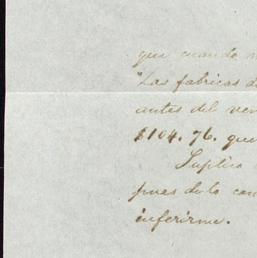 que cuando
"Las fabricas d
antes del ven
$104.76. que
Suplico
pues de la can
inferirme.